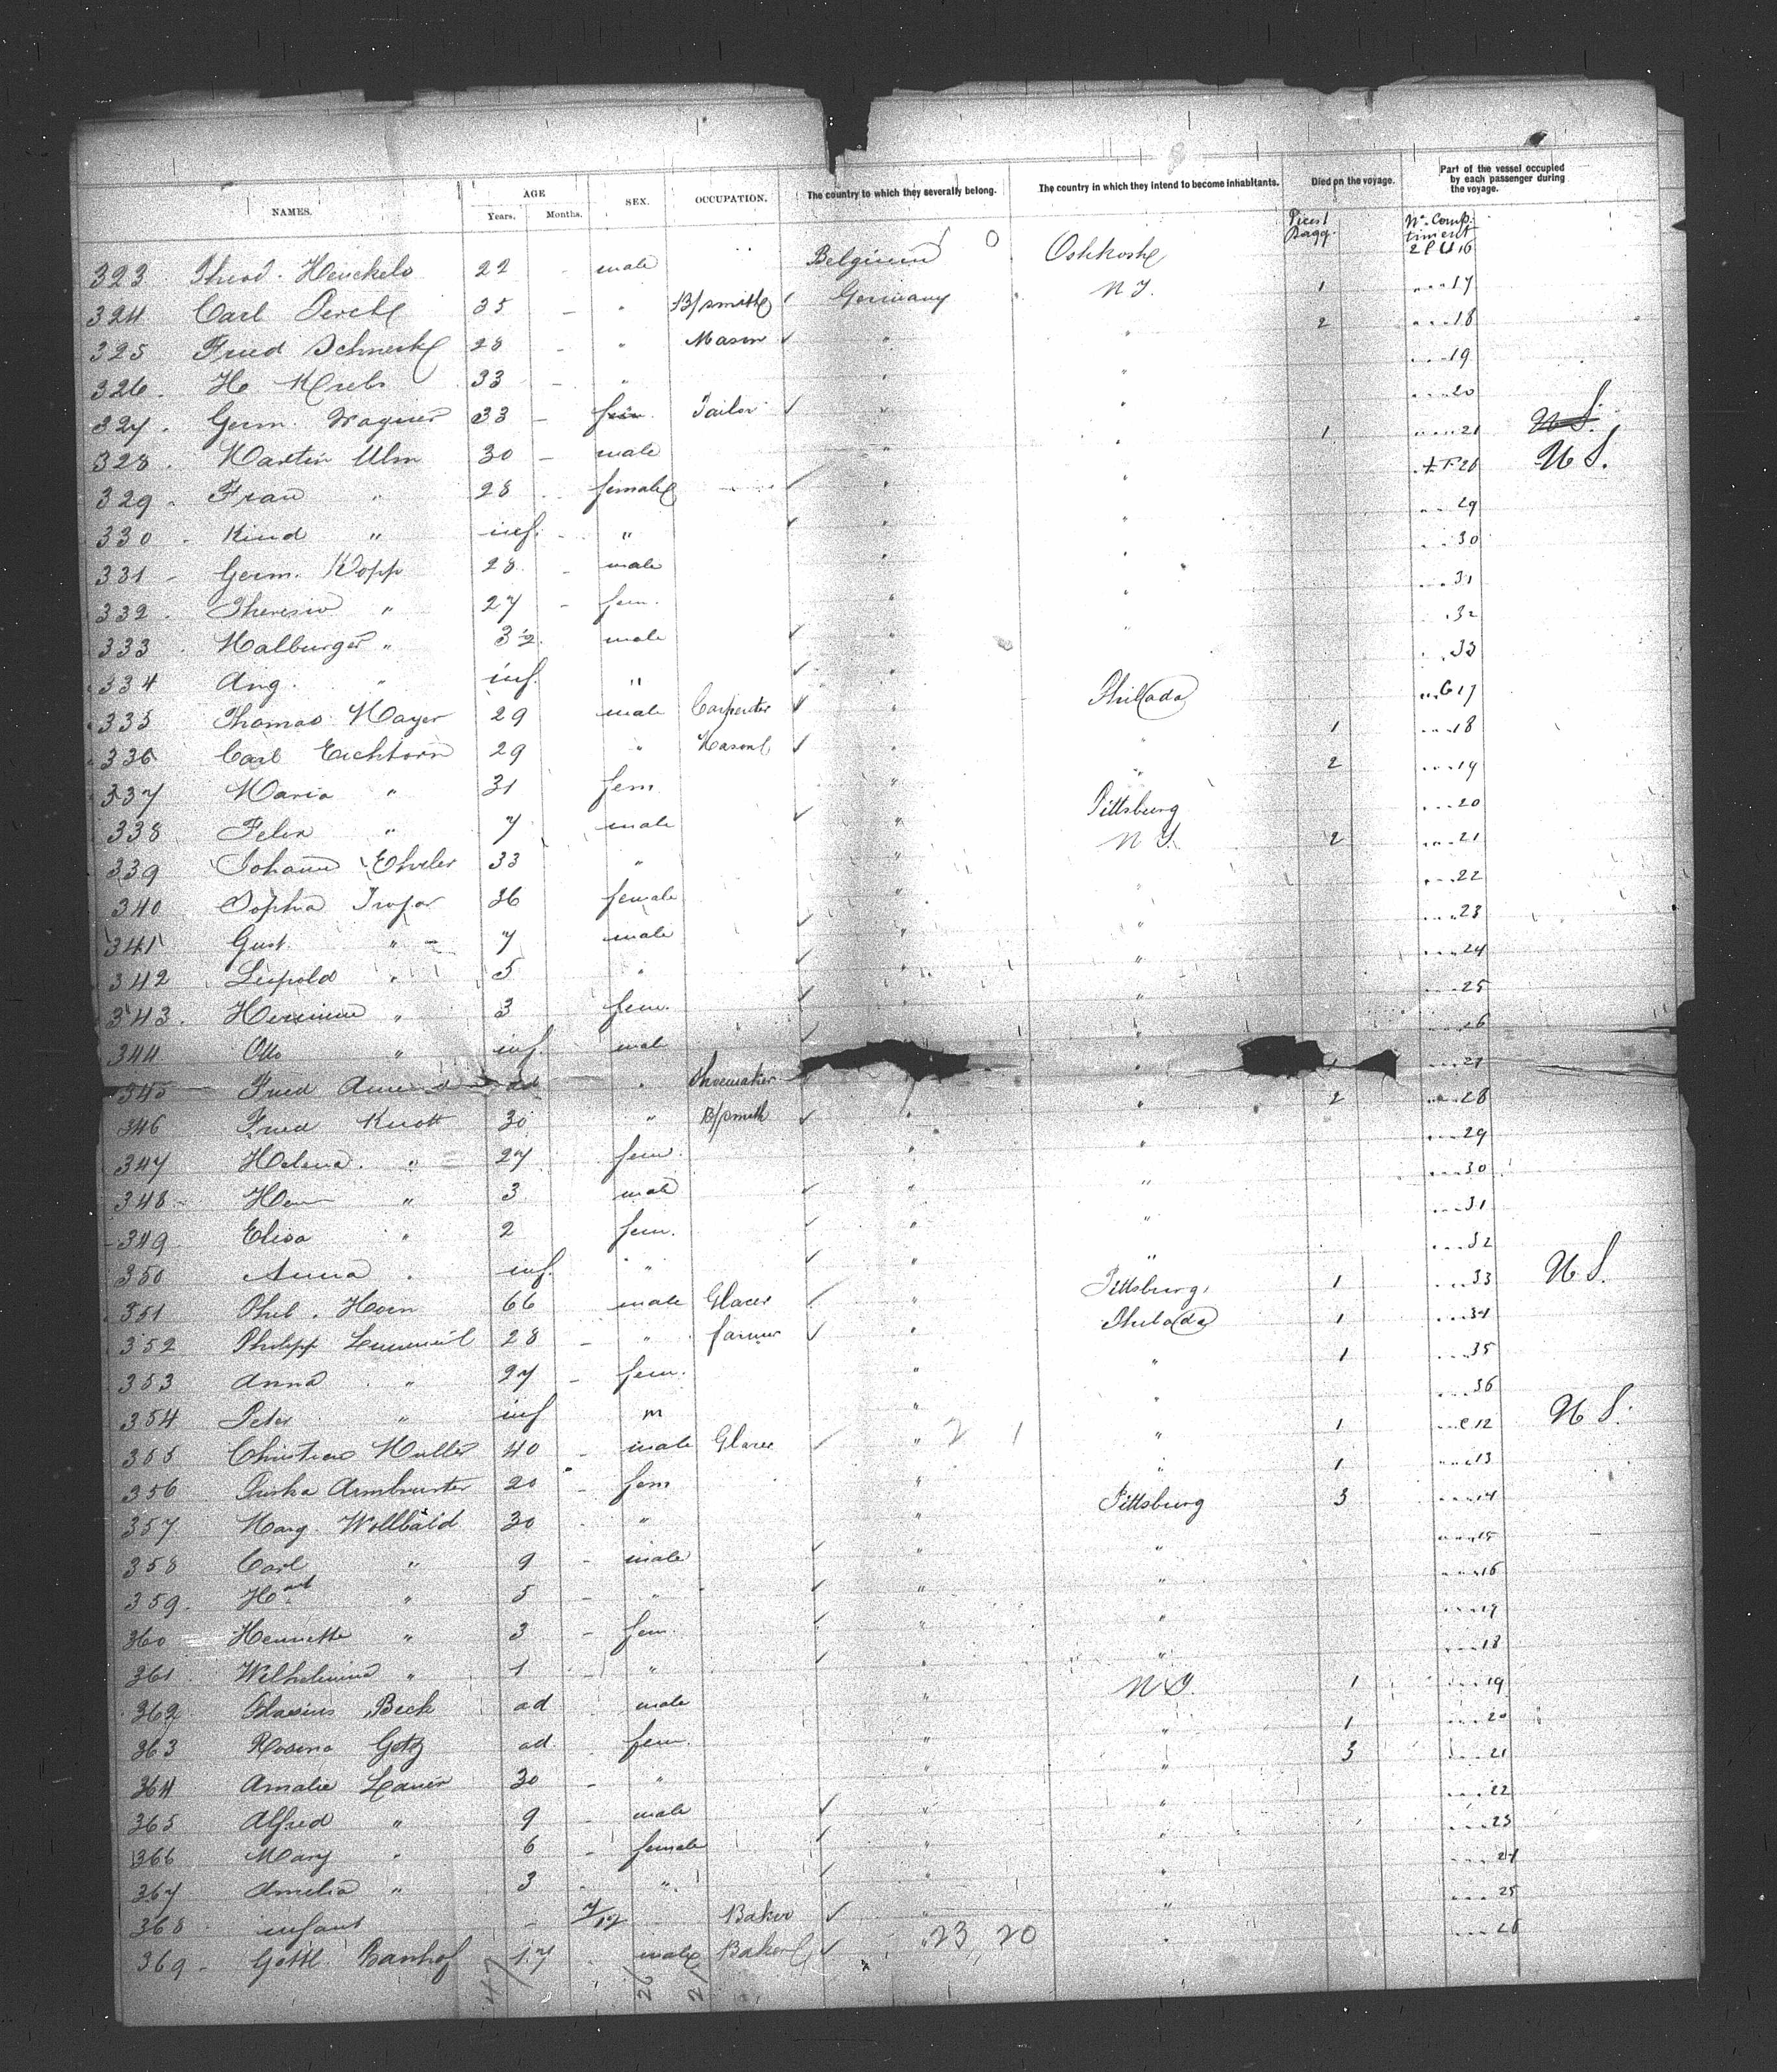 NAMES. AGE Years. Months. SEX. OCCUPATION. The country to which they severally belong. The country in which they intend to become inhabitants. Died on the voyage. Part of the vessel occupied by each passenger during the voyage.
Bagg. No. Comp. timent
323 Theod. Henckels 22 - male Belgium 0 Oshkosh 16
324 Carl 35 - " B/smith ✓ Germany " N Y. 1 " 17
325 Fried 28 - " Mason ✓ " " 2 " 18
326. H Krebs 33 - " " " " 19
327. Germ. Wagner 33 - fem. Tailor ✓ " " " 20
328. Martin Ulm 30 - male " " 1 " 21 U S. U S.
329. Frau " 28 female ✓ " " 26
330. Kind " inf. " ✓ " " " 29
331 Germ. Kopp 28 - male " " " 30
332. Theresia " 27 - fem. " " " 31
333. Walburger " 3½ male ✓ " " " 32
334 Aug. " inf. " ✓ " " " 33
335 Thomas Mayer 29 male Carpenter ✓ " Philada 17
336 Carl Eichhorn 29 " Mason ✓ " " 1 " 18
337 Maria " 31 fem. " " 2 " 19
338 Felix " 7 male ✓ " Pittsburg " 20
339 Johann 33 " " N Y. 2 " 21
340 Sophia 36 female " " " 22
341 Gust. " 7 male ✓ " " " 23
342 Leopold " 5 " ✓ " " " 24
343. Hermine " 3 fem. ✓ " " " 25
344 Otto " inf. male ✓ " " 26
345 Fried ad " Shoemaker " " 27
346 Fried Knott 30 " B/smith ✓ " " 2 " 28
347 Helena " 27 fem. " " " 29
348 " 3 male ✓ " " " 30
349 Elisa " 2 fem. ✓ " " " 31
350 Anna " inf. " ✓ " " " 32
351 Phil. Horn 66 male Glacer ✓ " Pittsburg 1 " 33 U S.
352 Philipp 28 - " farmer ✓ " Philada 1 " 34
353 Anna " 27 - fem. " " 1 " 35
354 Peter " inf m " " " 36
355 Christian Muller 40 - male Glacer ✓ " 2 1 " 1 12 U S.
356 Armbruster 20 - fem " " 1 13
357 Marg. Wollbald 30 " " Pittsburg 3 " 14
358 Carl " 9 - male ✓ " " " 15
359. " 5 - " ✓ " " " 16
360 Henriette " 3 - fem. ✓ " " " 17
361 Wilhelmina " 1 - " ✓ " " " 18
362 Blasius Beck ad male " N Y. 1 " 19
363 Rosina Getz ad fem. " " 1 " 20
364 Amalie 30 - " " " 3 " 21
365 Alfred " 9 male ✓ " " " 22
366 Mary " 6 - female ✓ " " " 23
367 Amelia " 3 " ✓ " " " 24
368 infant - 7/12 Baker ✓ " " " 25
369 Gottl. Banhof 17 male Baker ✓ " 23 20 " " 26
47 26 21